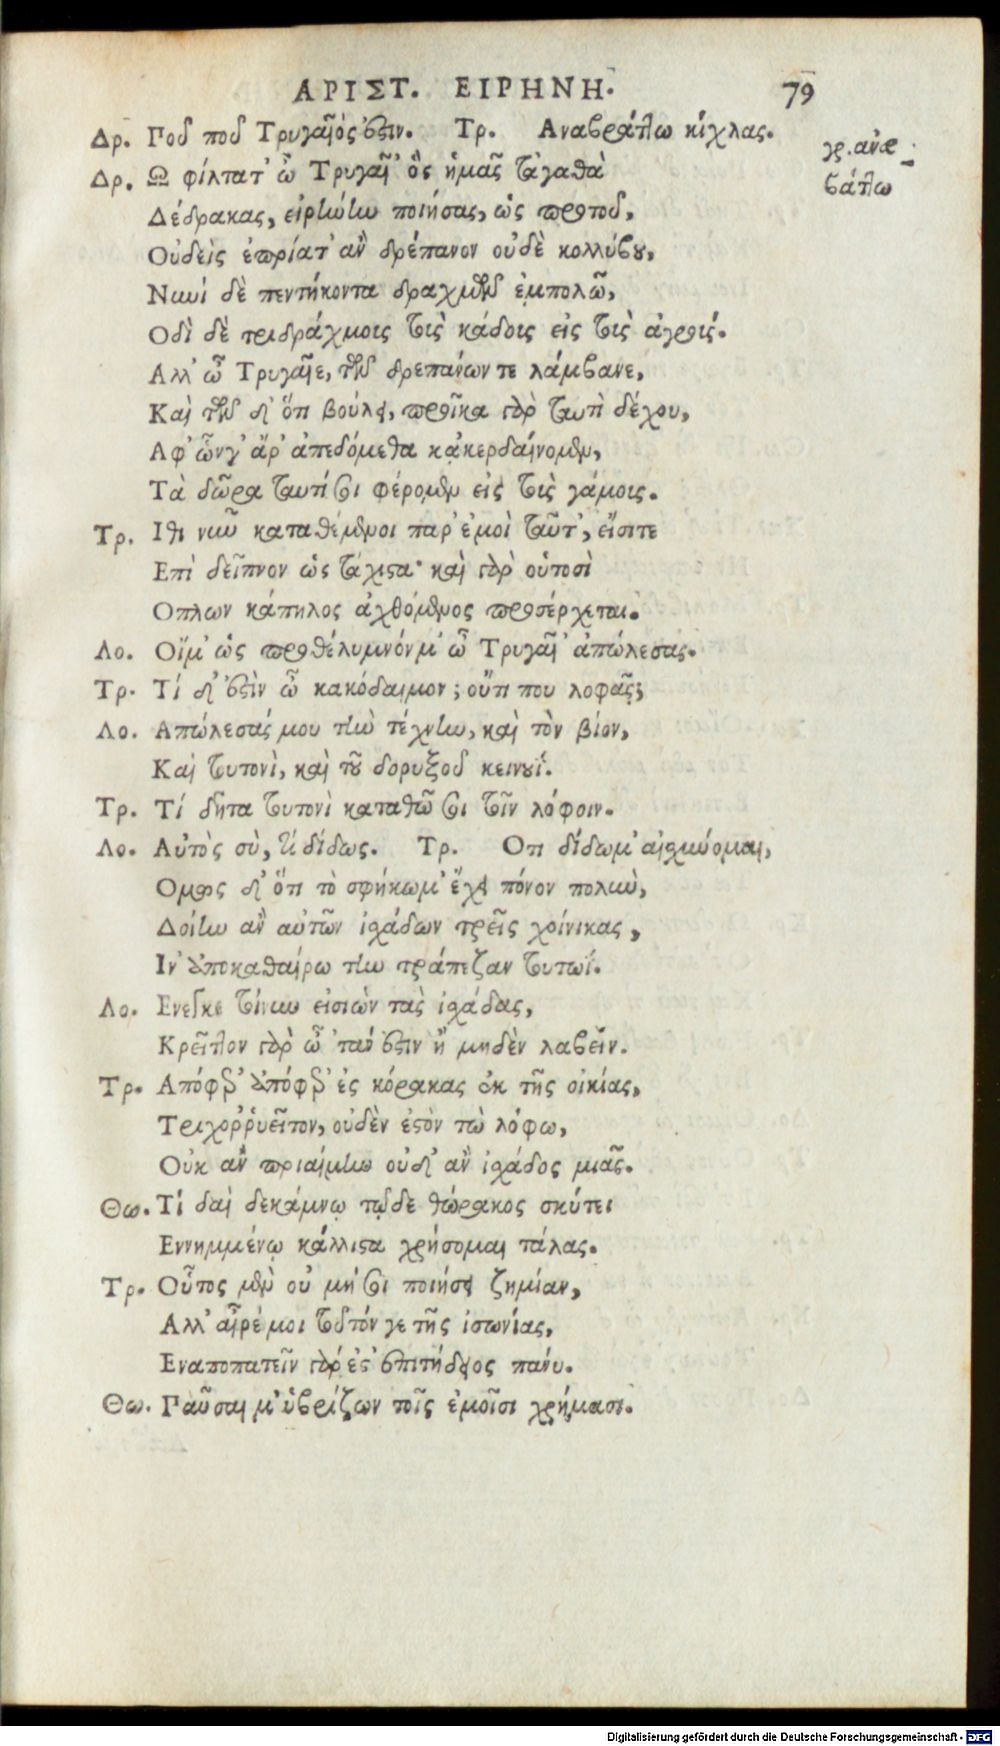 ΑΡΙΣΤ. ΕΙΡΗΝΗ. 79
Δρ. Ποῦ ποῦ Τρυγαῖός ἐστιν. Τρ. Αναβράττω κίχλας.
γρ. ανε-
βάττω
Δρ. Ω φίλτατ' ὦ Τρυγαῖ' ὃς ἡμᾶς τἀγαθὰ
Δέδρακας, εἰρήνην ποιήσας, ὡς πρὸτοῦ,
Οὐδεὶς ἐπρίατ' ἂν δρέπανον οὐδὲ κολλύβου,
Νυνὶ δὲ πεντήκοντα δραχμῶν ἐμπολῶ,
Οδὶ δὲ τριδράχμοις τοὶς κάδοις εἰς τοὶς ἀγροίς.
Αλλ' ὦ Τρυγαῖε, τῶν δρεπάνων τε λάμβανε,
Καὶ τῶν δ' ὅτι βούλει, προῖκα γὰρ ταυτὶ δέχου,
Αφ' ὧνγ' ἄρ' ἀπεδόμεθα κἀκερδαίνομεν,
Τὰ δῶρα ταυτί σοι φέρομεν εἰς τοὶς γάμοις.
Τρ. Ιθι νυῦ καταθέμενοι παρ' ἐμοὶ ταῦτ', εἴσιτε
Επὶ δεῖπνον ὡς τάχιστα· καὶ γὰρ οὑτοσὶ
Οπλων κάπηλος ἀχθόμενος προσέρχεται.
Λο. Οἴμ' ὡς προθέλυμνόν μ' ὦ Τρυγαῖ' ἀπώλεσας.
Τρ. Τί δ' ἐστὶν ὦ κακόδαιμον; οὔτι που λοφᾷς;
Λο. Απώλεσάς μου τὴν τέχνην, καὶ τὸν βίον,
Καὶ τουτονὶ, καὶ τοῦ δορυξοῦ κεινουί.
Τρ. Τί δῆτα τουτονὶ καταθῶ σοι τοῖν λόφοιν.
Λο. Αὐτὸς σὺ, τί δίδως. Τρ. Οτι δίδωμ' αἰσχύομαι,
Ομως δ' ὅτι τὸ σφήκωμ' ἔχει πόνον πολὺν,
Δοίην ἂν αὐτῶν ἰσχάδων τρεῖς χοίνικας,
Ιν' ἀποκαθαίρω τὴν τράπεζαν τουτωί.
Λο. Ενεγκε τοίνυν εἰσιὼν τας ἰσχάδας,
Κρεῖττον γὰρ ὦ 'τάν ἐστιν ἢ μηδὲν λαβεῖν.
Τρ. Απόφερ' ἀπόφερ' ἐς κόρακας ἐκ τῆς οἰκίας,
Τριχορῤῥυεῖτον, οὐδὲν ἐστὸν τὼ λόφω,
Οὐκ ἂν πριαίμην οὐδ' ἂν ἰσχάδος μιᾶς.
Θω. Τί δαὶ δεκάμνῳ τῷδε θώρακος σκύτει
Εννημμένῳ κάλλιστα χρήσομαι τάλας.
Τρ. Οὗτος μὲν οὐ μή σοι ποιήσει ζημίαν,
Αλλ' αἶρέ μοι τοῦτόν γε τῆς ἰσωνίας,
Εναποπατεῖν γάρ ἐς' ἐπιτήδειος πάνυ.
Θω. Παῦσαι μ' ὑβρίζων τοῖς ἐμοῖσι χρήμασι.
Digitalisierung gefördert durch die Deutsche Forschungsgemeinschaft - DFG